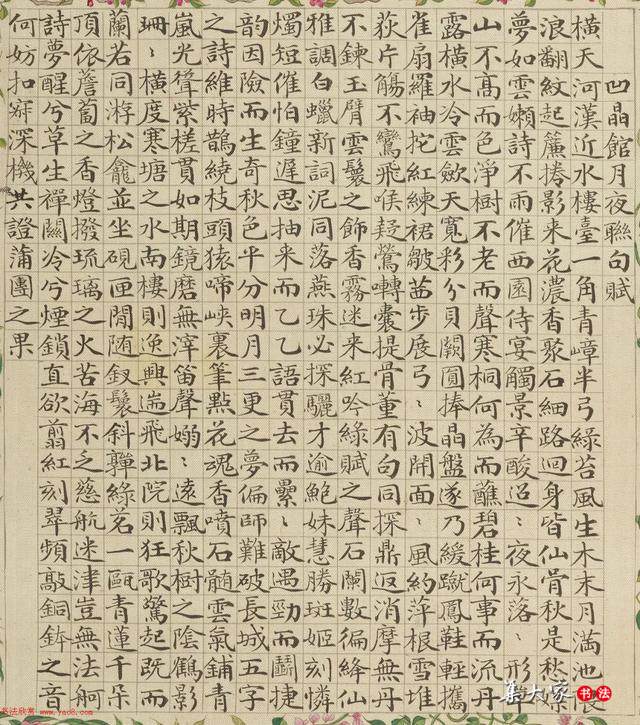 凹晶館月夜聯句賦
橫天河漢近水樓臺一角青嶂半弓綠苔風生木末月滿池
浪翻紋起簾捲影来花濃香聚石細路迴身皆仙骨秋是秋
夢如雲嬾詩不雨催西園侍宴觸景辛酸迢〻夜永落〻形單
山不高而色淨樹不老而聲寒桐何為而蘸碧桂何事而流丹
露橫水冷雲斂天寬彩分貝闕圓捧晶盤遂乃緩蹴鳳鞋輕攜
雀扇羅袖挖紅練裙皺茜步展弓〻波開面〻風約萍根雪堆
荻片觴不鸞飛喉疑鶯囀囊提骨董有句同探鼎返消摩無丹
不鍊玉臂雲鬟之飾香霧迷来紅吟綠賦之聲石闌數徧絳仙
雅調白蠟新詞泥同落燕珠必探驪才逾鮑妹慧勝班姬刻憐
燭短催怕鐘遲思抽来而乙乙語貫去而纍〻敵遇勁而鬭捷
韵因險而生奇秋色平分明月三更之夢偏師難破長城五字
之詩維時鵲繞枝頭猿啼峽裏筆點花魂香噴石髓雲氣鋪青
嵐光聳紫槎貫如期鏡磨無滓笛聲嫋〻遠飄秋樹之陰鶴影
珊〻橫度寒塘之水南樓則逸興遄飛北院則狂歌驚起既而
蘭若同游松龕並坐硯匣閒随釵鬟斜嚲綠茗一甌青蓮千朵
頂依簷蔔之香燈撥琉璃之火苦海不乏慈航迷津豈無法舸
詩夢醒兮草生禪關冷兮煙鎖直欲翦紅刻翠頻敲銅鉢之音
何妨扣寂深機共證蒲團之果
集大家書法
书法欣赏
www.yac8.com